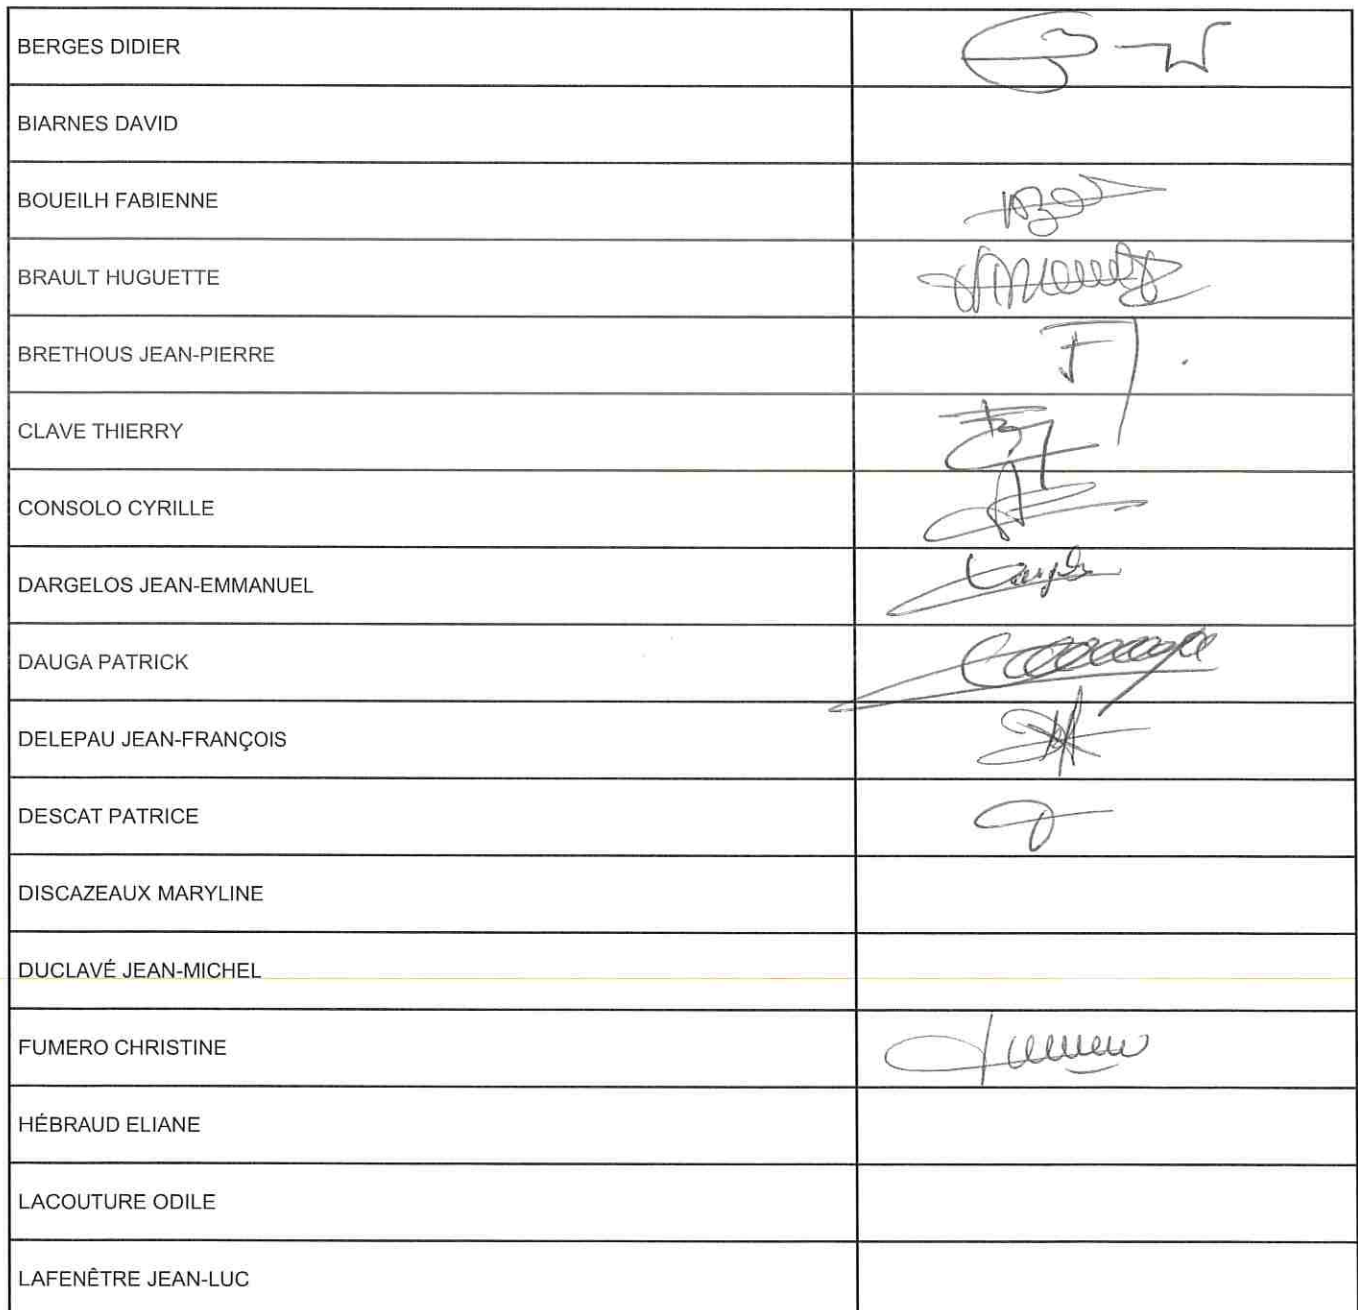 BERGES DIDIER
BIARNES DAVID
BOUEILH FABIENNE
BRAULT HUGUETTE
BRETHOUS JEAN-PIERRE
CLAVE THIERRY
CONSOLO CYRILLE
DARGELOS JEAN-EMMANUEL
DAUGA PATRICK
DELEPAU JEAN-FRANÇOIS
DESCAT PATRICE
DISCAZEAUX MARYLINE
DUCLAVÉ JEAN-MICHEL
FUMERO CHRISTINE
HÉBRAUD ELIANE
LACOUTURE ODILE
LAFENÊTRE JEAN-LUC